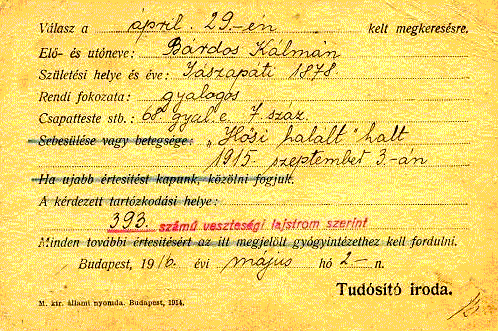 Válasz a április 29-én kelt megkeresésre.
Elő- és utóneve: Bárdos Kálmán
Születési helye és éve: Jászapáti 1878.
Rendi fokozata: gyalogos
Csapatteste stb.: 68 gyal. e. 7. száz.
Sebesülése vagy betegsége: „Hősi halált" halt
1915. szeptember 3-án
Ha ujabb értesitést kapunk, közölni fogjuk.
A kérdezett tartózkodási helye:
393. számú veszteségi lajstrom szerint
Minden további értesitésért az itt megjelölt gyógyintézethez kell fordulni.
Budapest, 1916. évi május hó 2-n.
Tudósitó iroda.
M. kir. állami nyomda. Budapest, 1914.